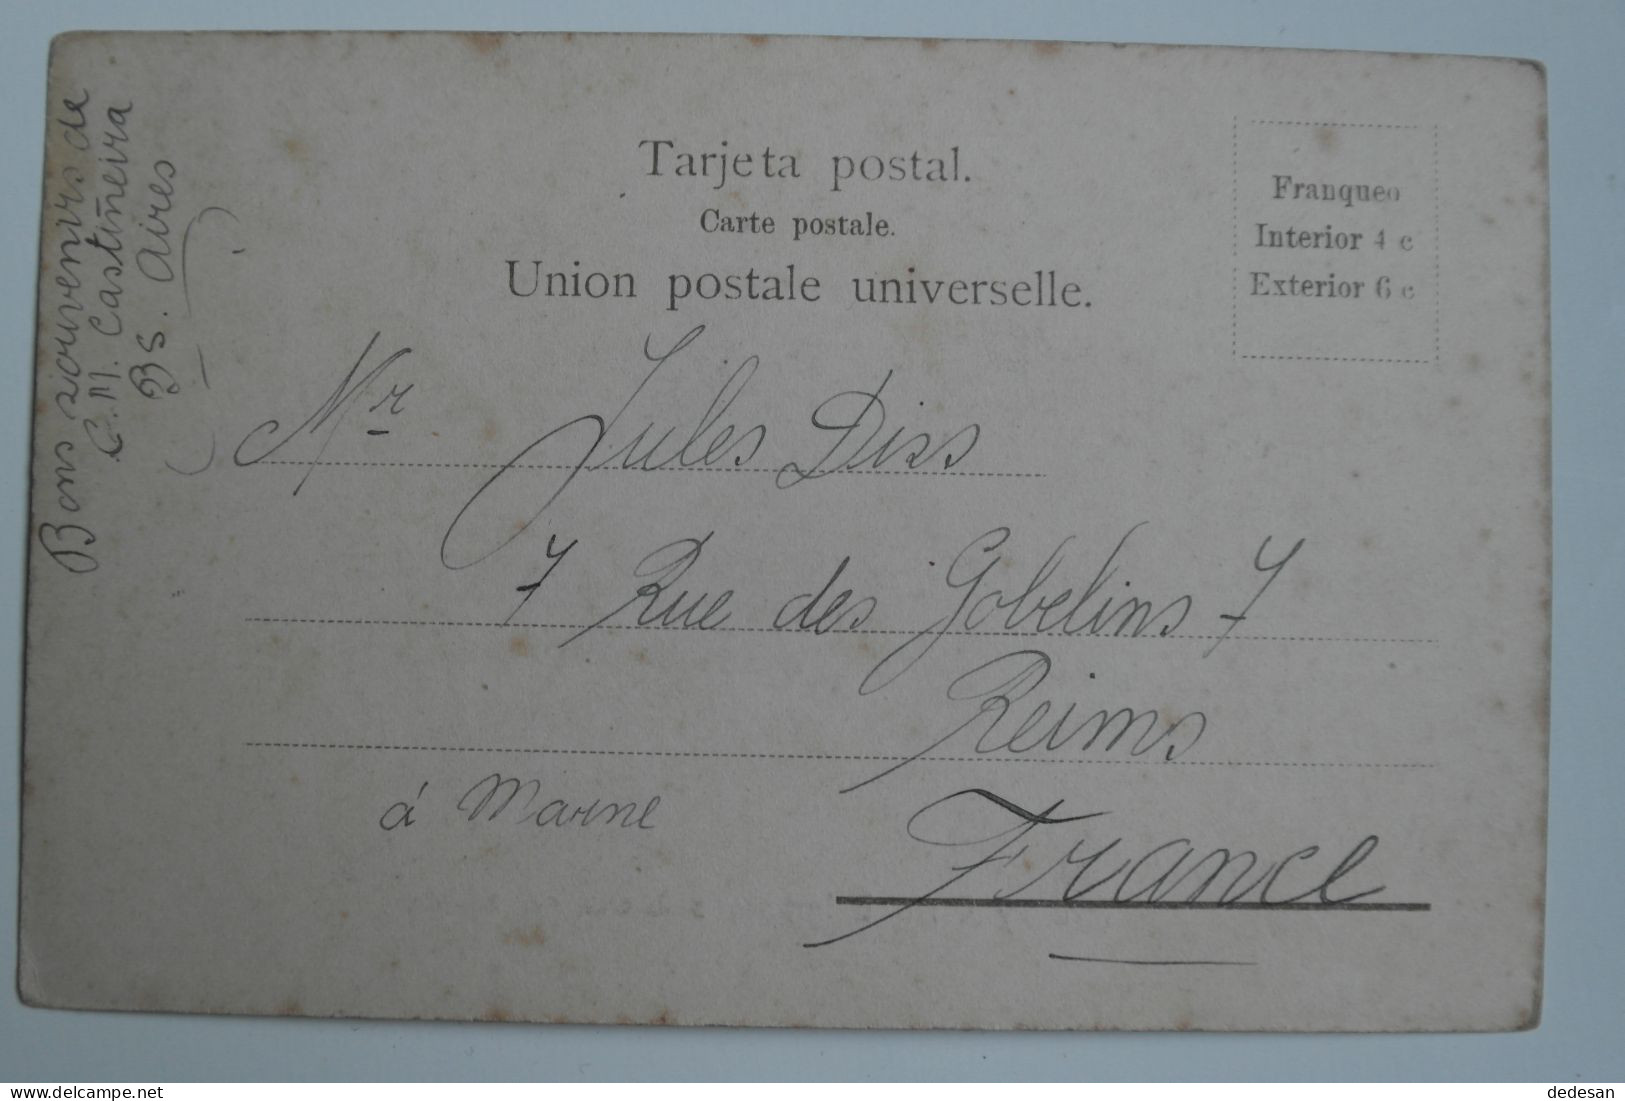 Bons souvenirs de
C. M. Castiñeira
BS. Aires
Tarjeta postal.
Carte postale.
Union postale universelle.
Franqueo
Interior 4 c
Exterior 6 c
Mr Jules Diss
7 Rue des Gobelins 7
Reims
á Marne
France
delcampe.net
dedesan